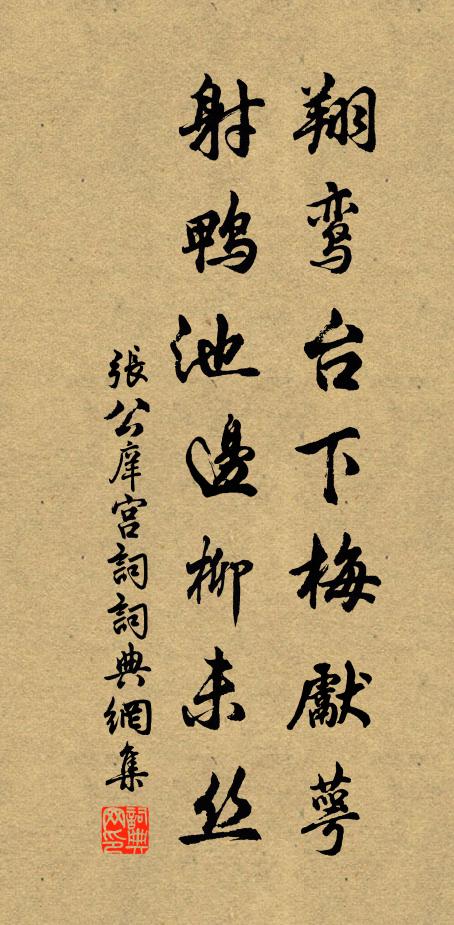 翔鸾台下梅獻萼
射鴨池邊柳未丝
張公庠宮詞詞典網集
詞典网印